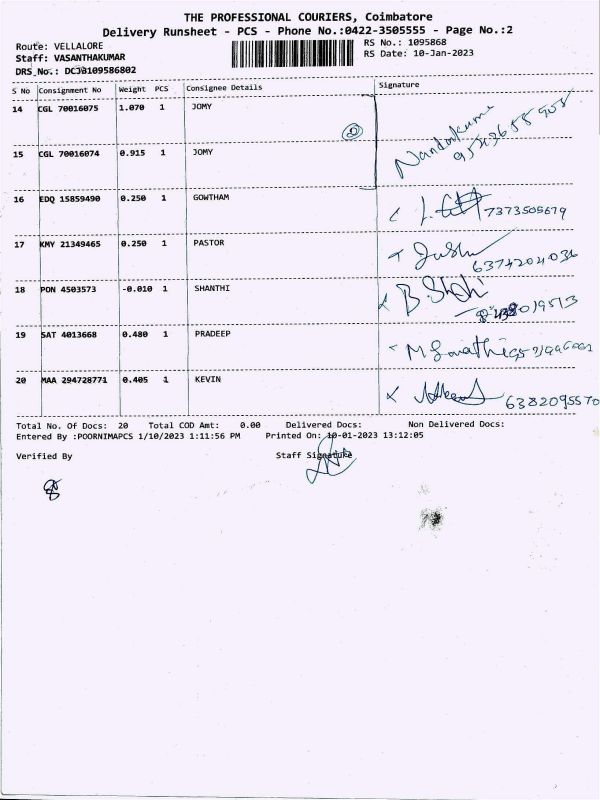 THE PROFESSIONAL COURIERS, Coimbatore
Delivery Runsheet - PCS - Phone No.:0422-3505555 - Page No.:2
Route: VELLALORE
RS No.: 1095868
Staff: VASANTHAKUMAR
RS Date: 10-Jan-2023
DRS No.: DCJB109586802
S No Consignment No Weight PCS Consignee Details Signature
14 CGL 70016075 1.070 1 JOMY
15 CGL 70016074 0.915 1 JOMY
Nandakumar
16 EDQ 15859490 0.250 1 GOWTHAM 7373505679
17 KMY 21349465 0.250 1 PASTOR
6374204036
18 PON 4503573 -0.010 1 SHANTHI
19 SAT 4013668 0.480 1 PRADEEP
20 MAA 294728771 0.405 1 KEVIN
6382095570
Total No. Of Docs: 20 Total COD Amt: 0.00 Delivered Docs: Non Delivered Docs:
Entered By :POORNIMAPCS 1/10/2023 1:11:56 PM Printed On: 10-01-2023 13:12:05
Verified By Staff Signature